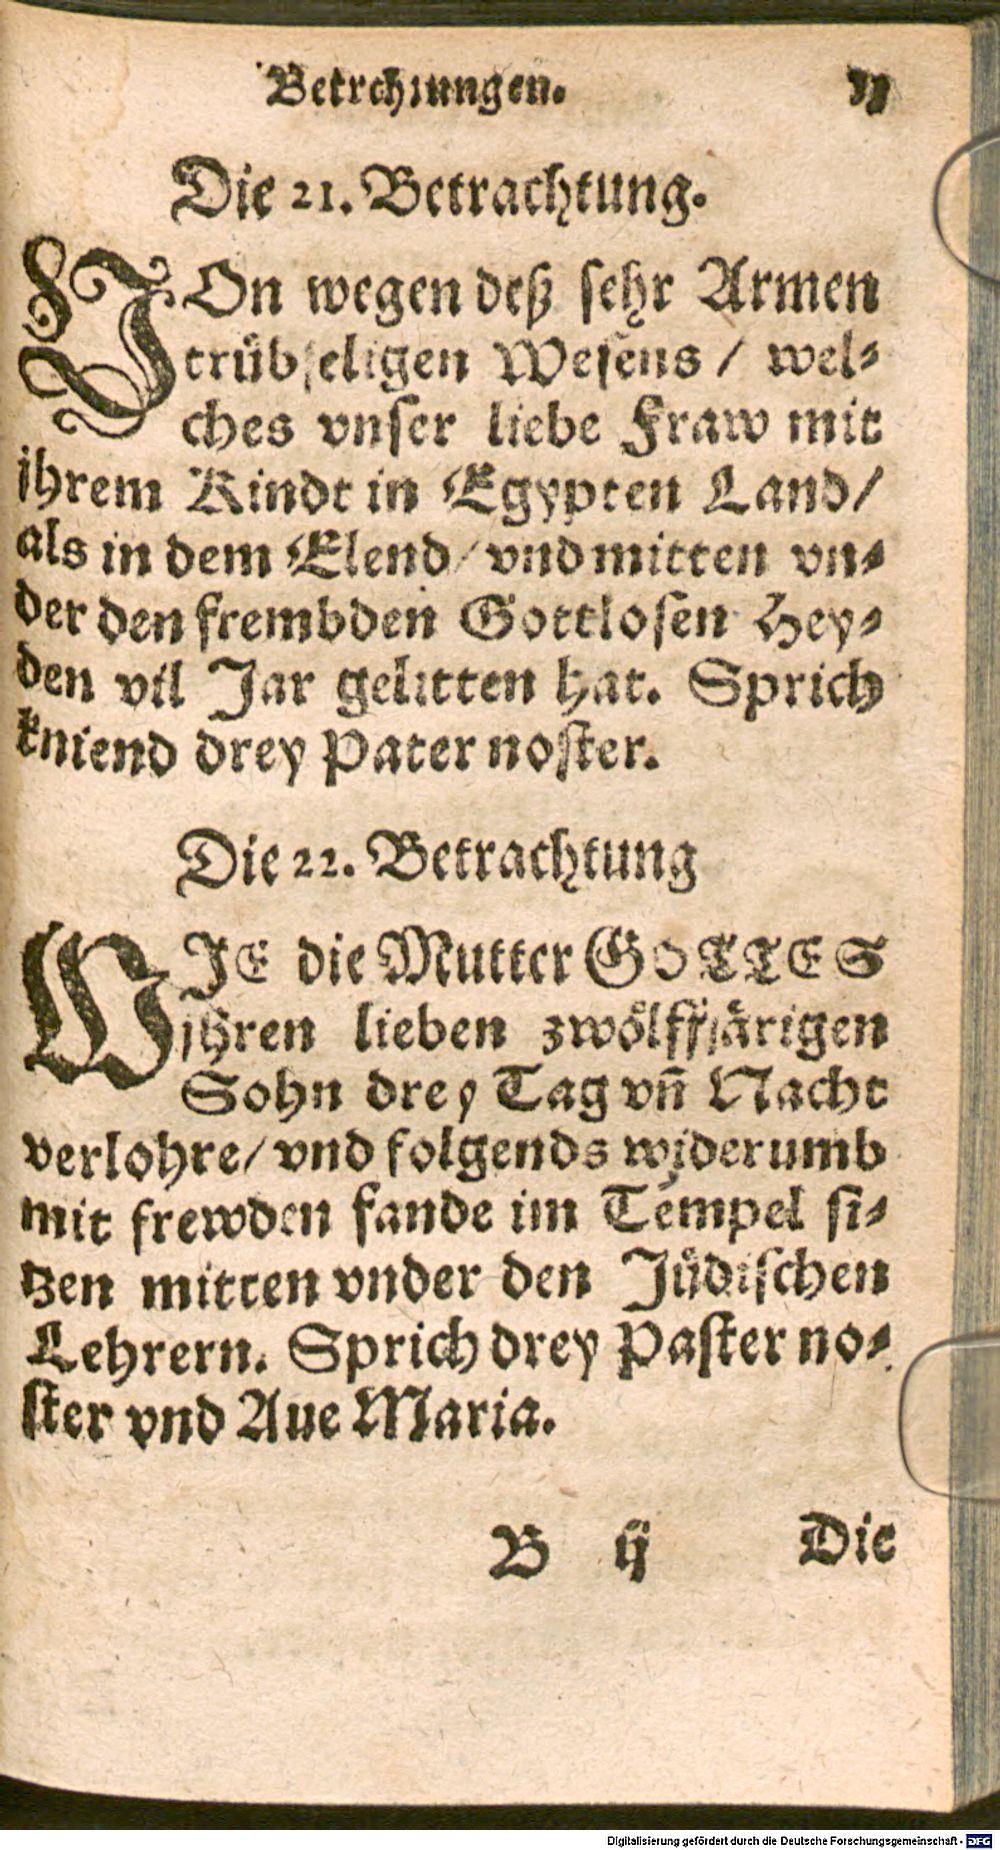 Betrchtungen.
Die 21. Betrachtung.
VOn wegen deß sehr Armen
trübseligen Wesens / wel-
ches vnser liebe Fraw mit
ihrem Kindt in Egypten Land/
als in dem Elend/ vnd mitten vn-
der den frembden Gottlosen Hey-
den vil Jar gelitten hat. Sprich
kniend drey Pater noster.
Die 22. Betrachtung
WJE die Mutter GOTTES
jhren lieben zwölffjärigen
Sohn drey Tag vñ Nacht
verlohre/ vnd folgends widerumb
mit frewden fande im Tempel si-
tzen mitten vnder den Jüdischen
Lehrern. Sprich drey Paster no-
ster vnd Aue Maria.
B ij Die
Digitalisierung gefördert durch die Deutsche Forschungsgemeinschaft - DFG